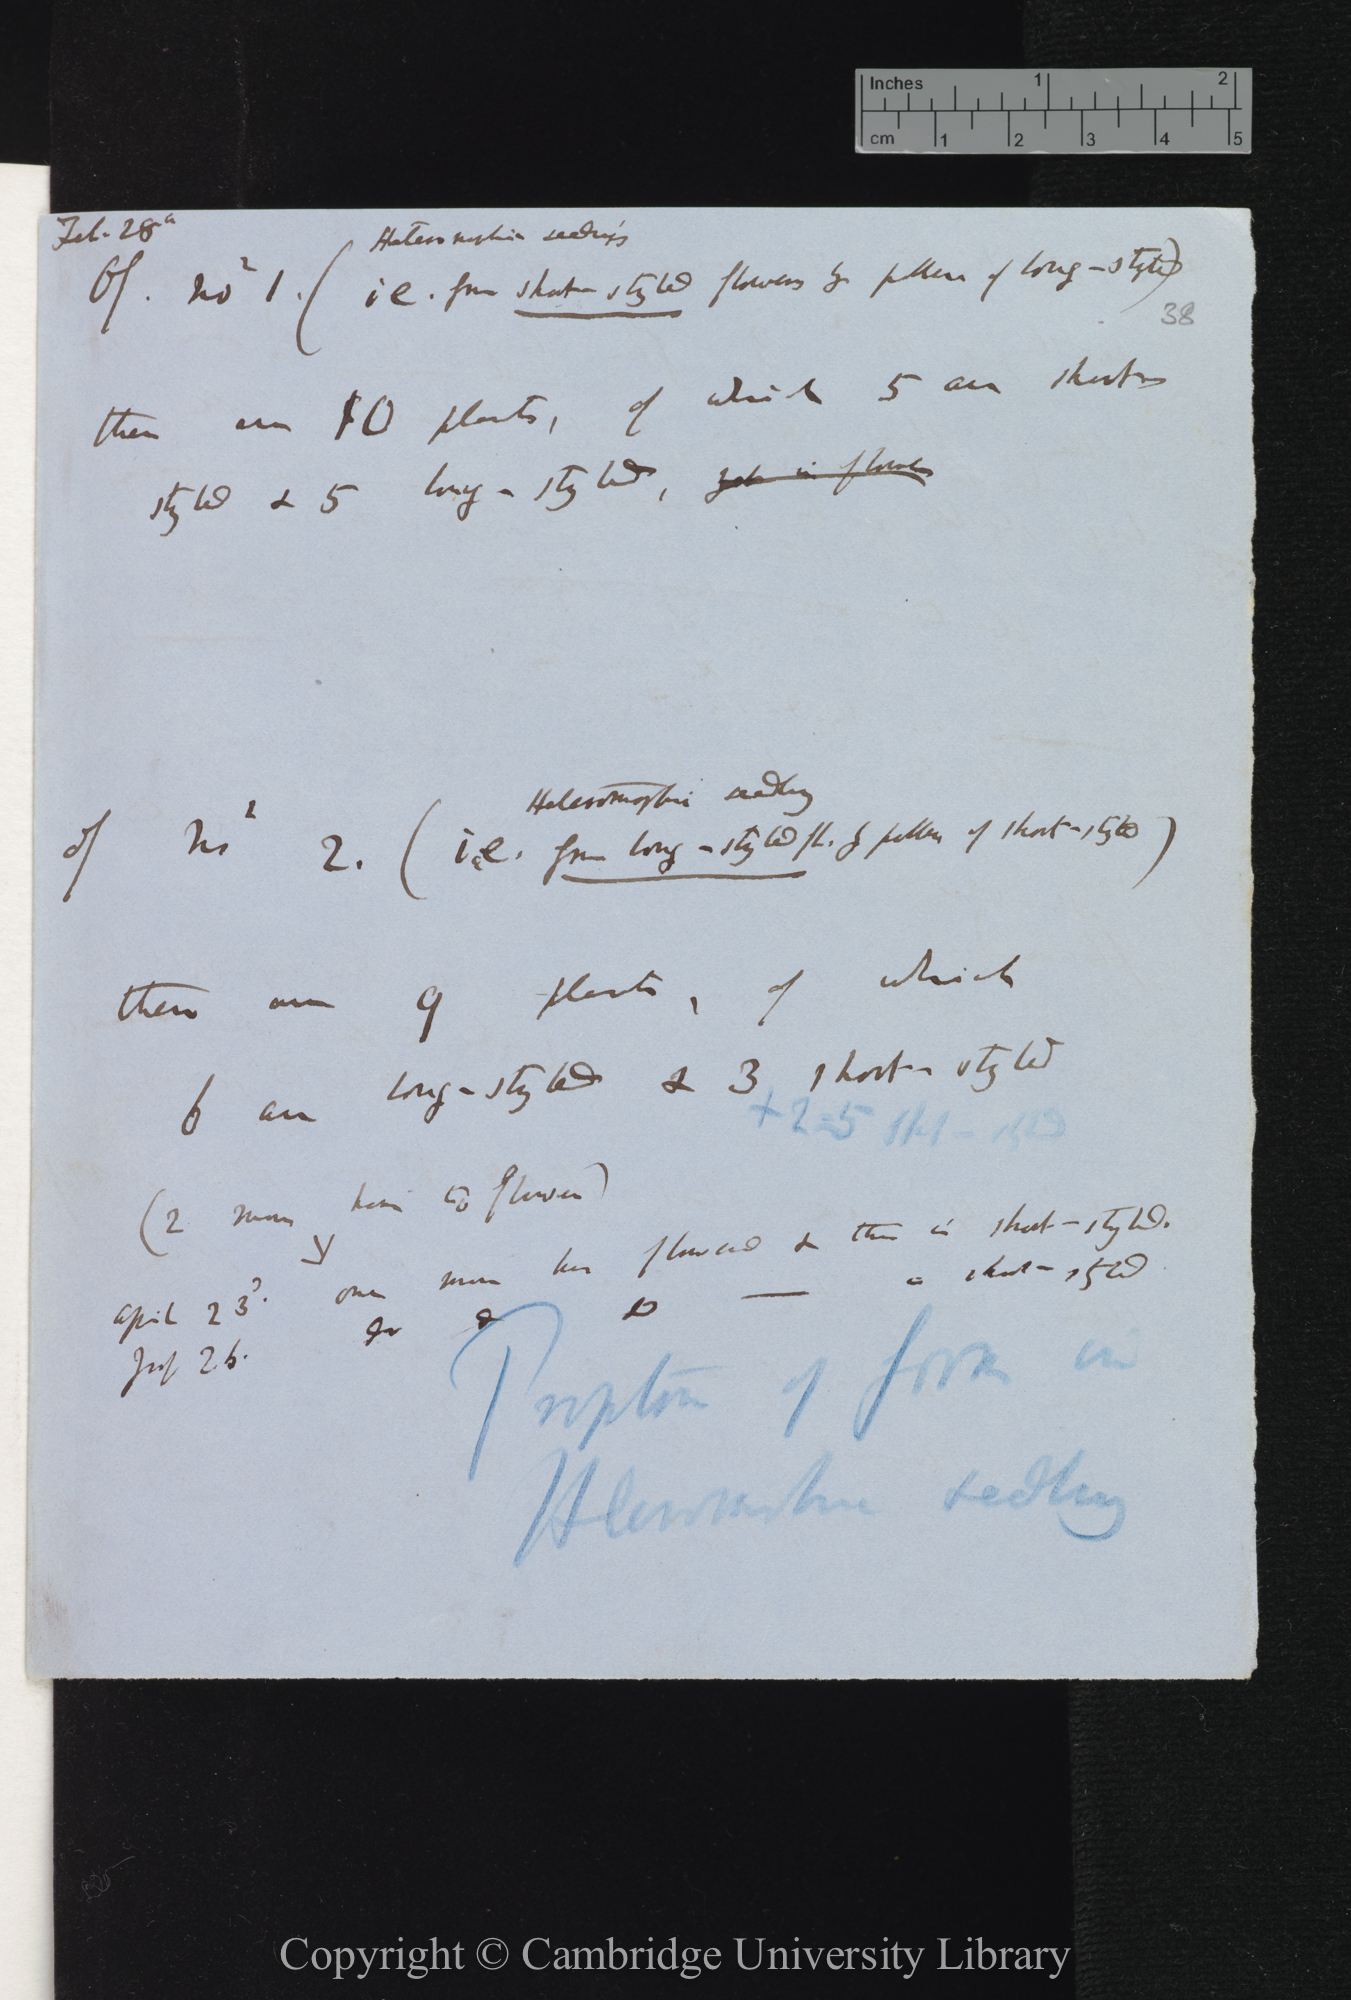 Inches 1 2
cm 1 2 3 4 5
Feb. 28th
Heteromorphic seedlings
Of. No 1. (ie. from short-styled flowers by pollen of long-styled)
38
there are 10 plants, of which 5 are short-
styled & 5 long-styled, yet in flower
Heteromorphic seedling
Of No 2. (i.e. from long-styled fl. by pollen of short-styled)
there are 9 plants, of which
6 are long-styled & 3 short-styled
+2=5 sht-styled
(2 more have to flower)
April 23d. one more has flowered & this is short-styled.
26. do do — is short-styled
Proption of form in
Heteromorphic seedling
Copyright © Cambridge University Library